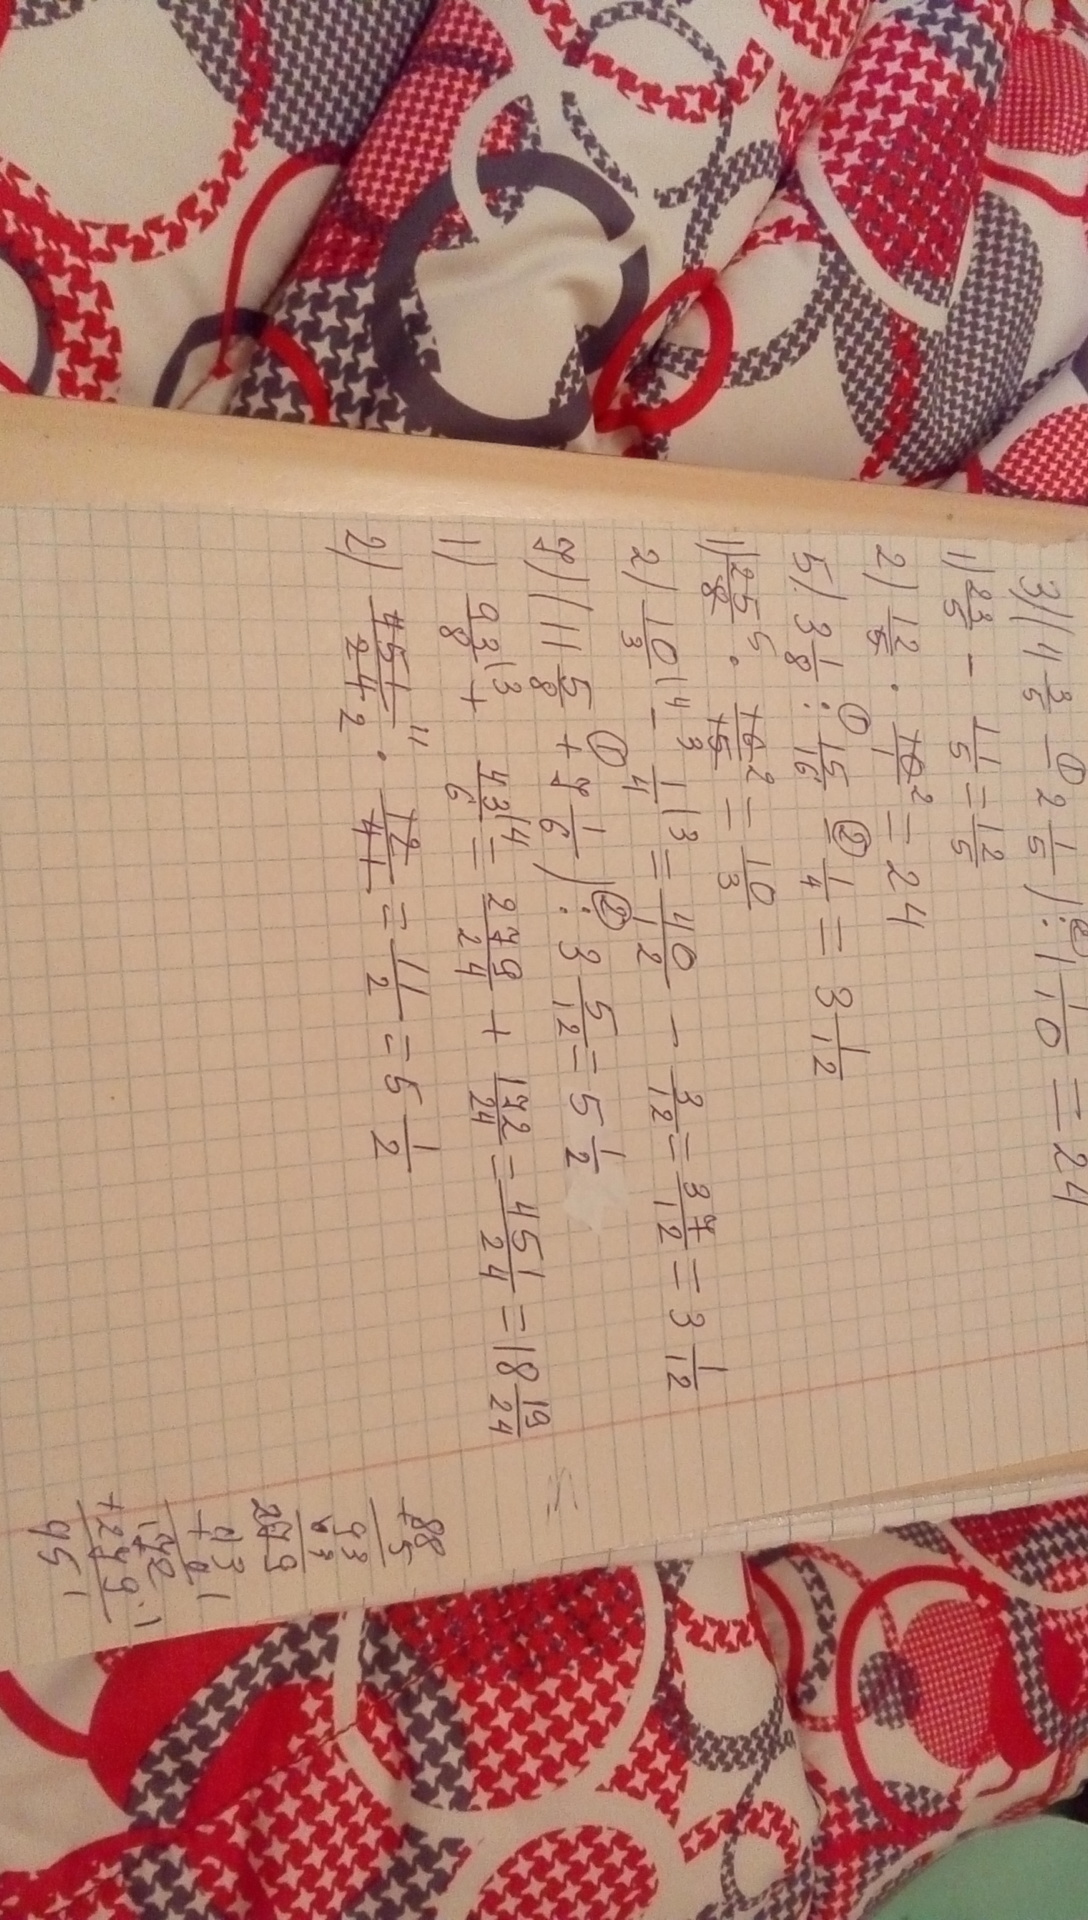 3) (4 3/5 - 2 1/5) : 1/10 = 24
1) 23/5 - 11/5 = 12/5
2) 12/5 · 10/1 2 = 24
5) 3 1/8 : 15/16 - 1/4 = 3 1/12
1) 25/8 5 · 16/15 2/3 = 10/3
2) 10/3 |4 - 1/4 |3 = 40/12 - 3/12 = 37/12 = 3 1/12
7) (11 5/8 + 7 1/6) : 3 5/12 = 5 1/2
1) 93/8 |3 + 43/6 |4 = 279/24 + 172/24 = 451/24 = 18 19/24
2) 451/24 11/2 · 12/41 = 11/2 = 5 1/2
88
+ 5
93
3
279
43
4
172
+ 279
451